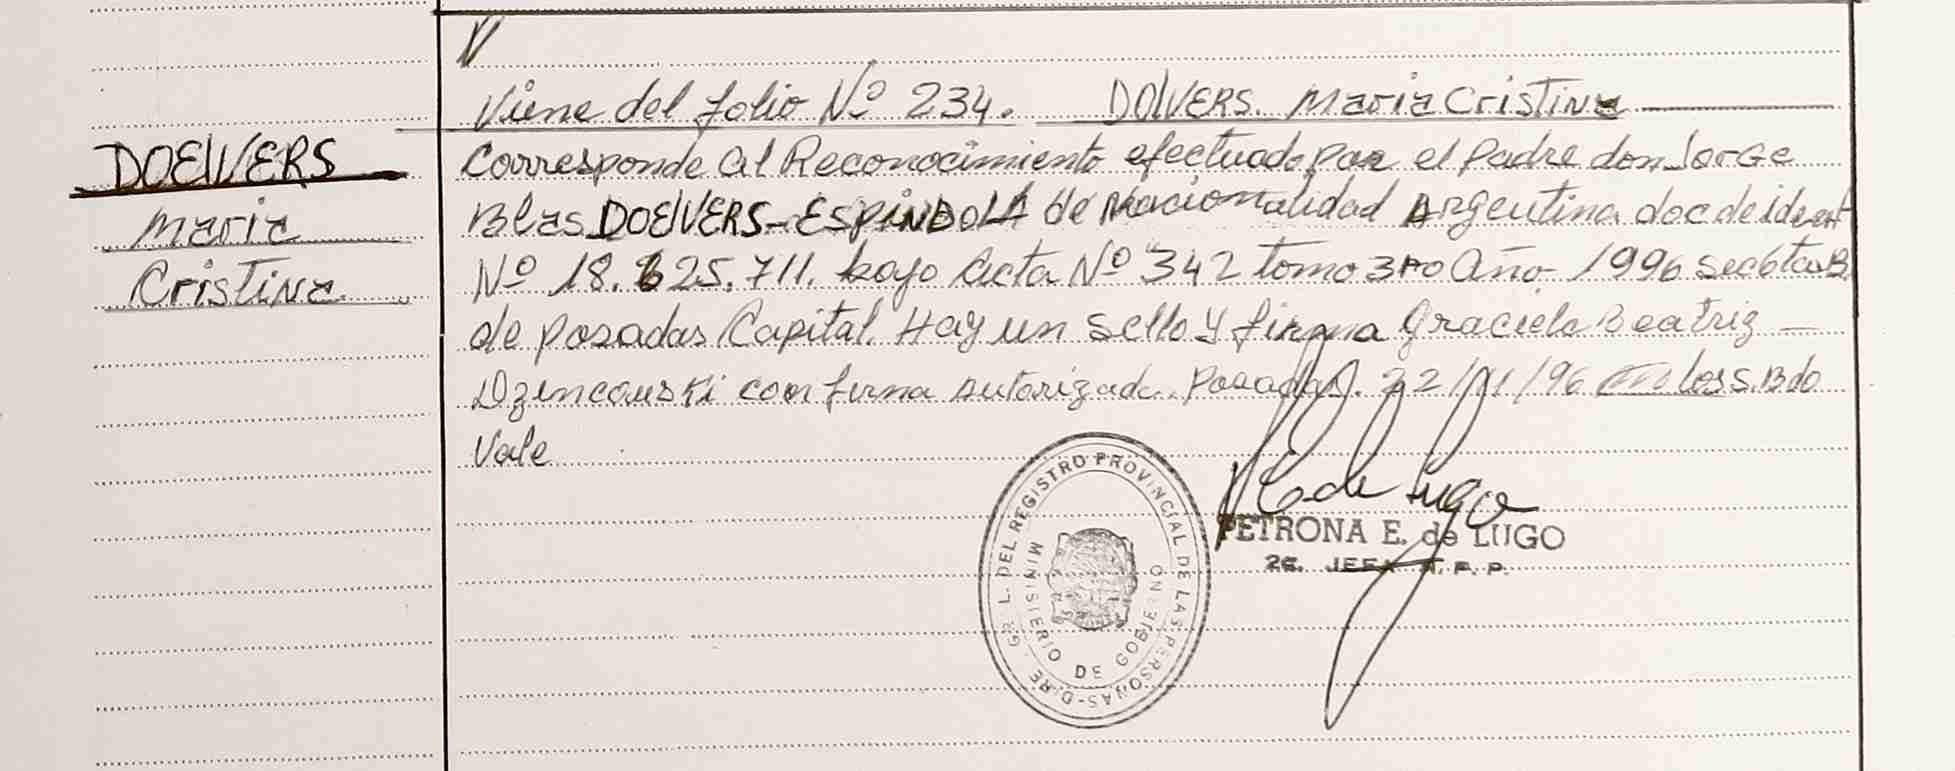 DOEWERS
Maria
Cristina
Viene del folio Nº 234. DOWERS. Maria Cristina
Corresponde al Reconocimiento efectuado por el Padre don Jorge
Blas DOEWERS-ESPINDOLA de Nacionalidad Argentina doc de ident
Nº 18.625.711. bajo Acta Nº 342 tomo 3ro Año 1996 Secc 6ta B
de Posadas Capital. Hay un sello y firma Graciela Beatriz
Dzincouski con firma autorizada. Posadas. 22/11/96 los S. Bdo
Vale
DEL REGISTRO PROVINCIAL DE LAS PERSONAS
MINISTERIO DE GOBIERNO
E de Lugo
PETRONA E. de LUGO
2a. JEFA R.P.P.